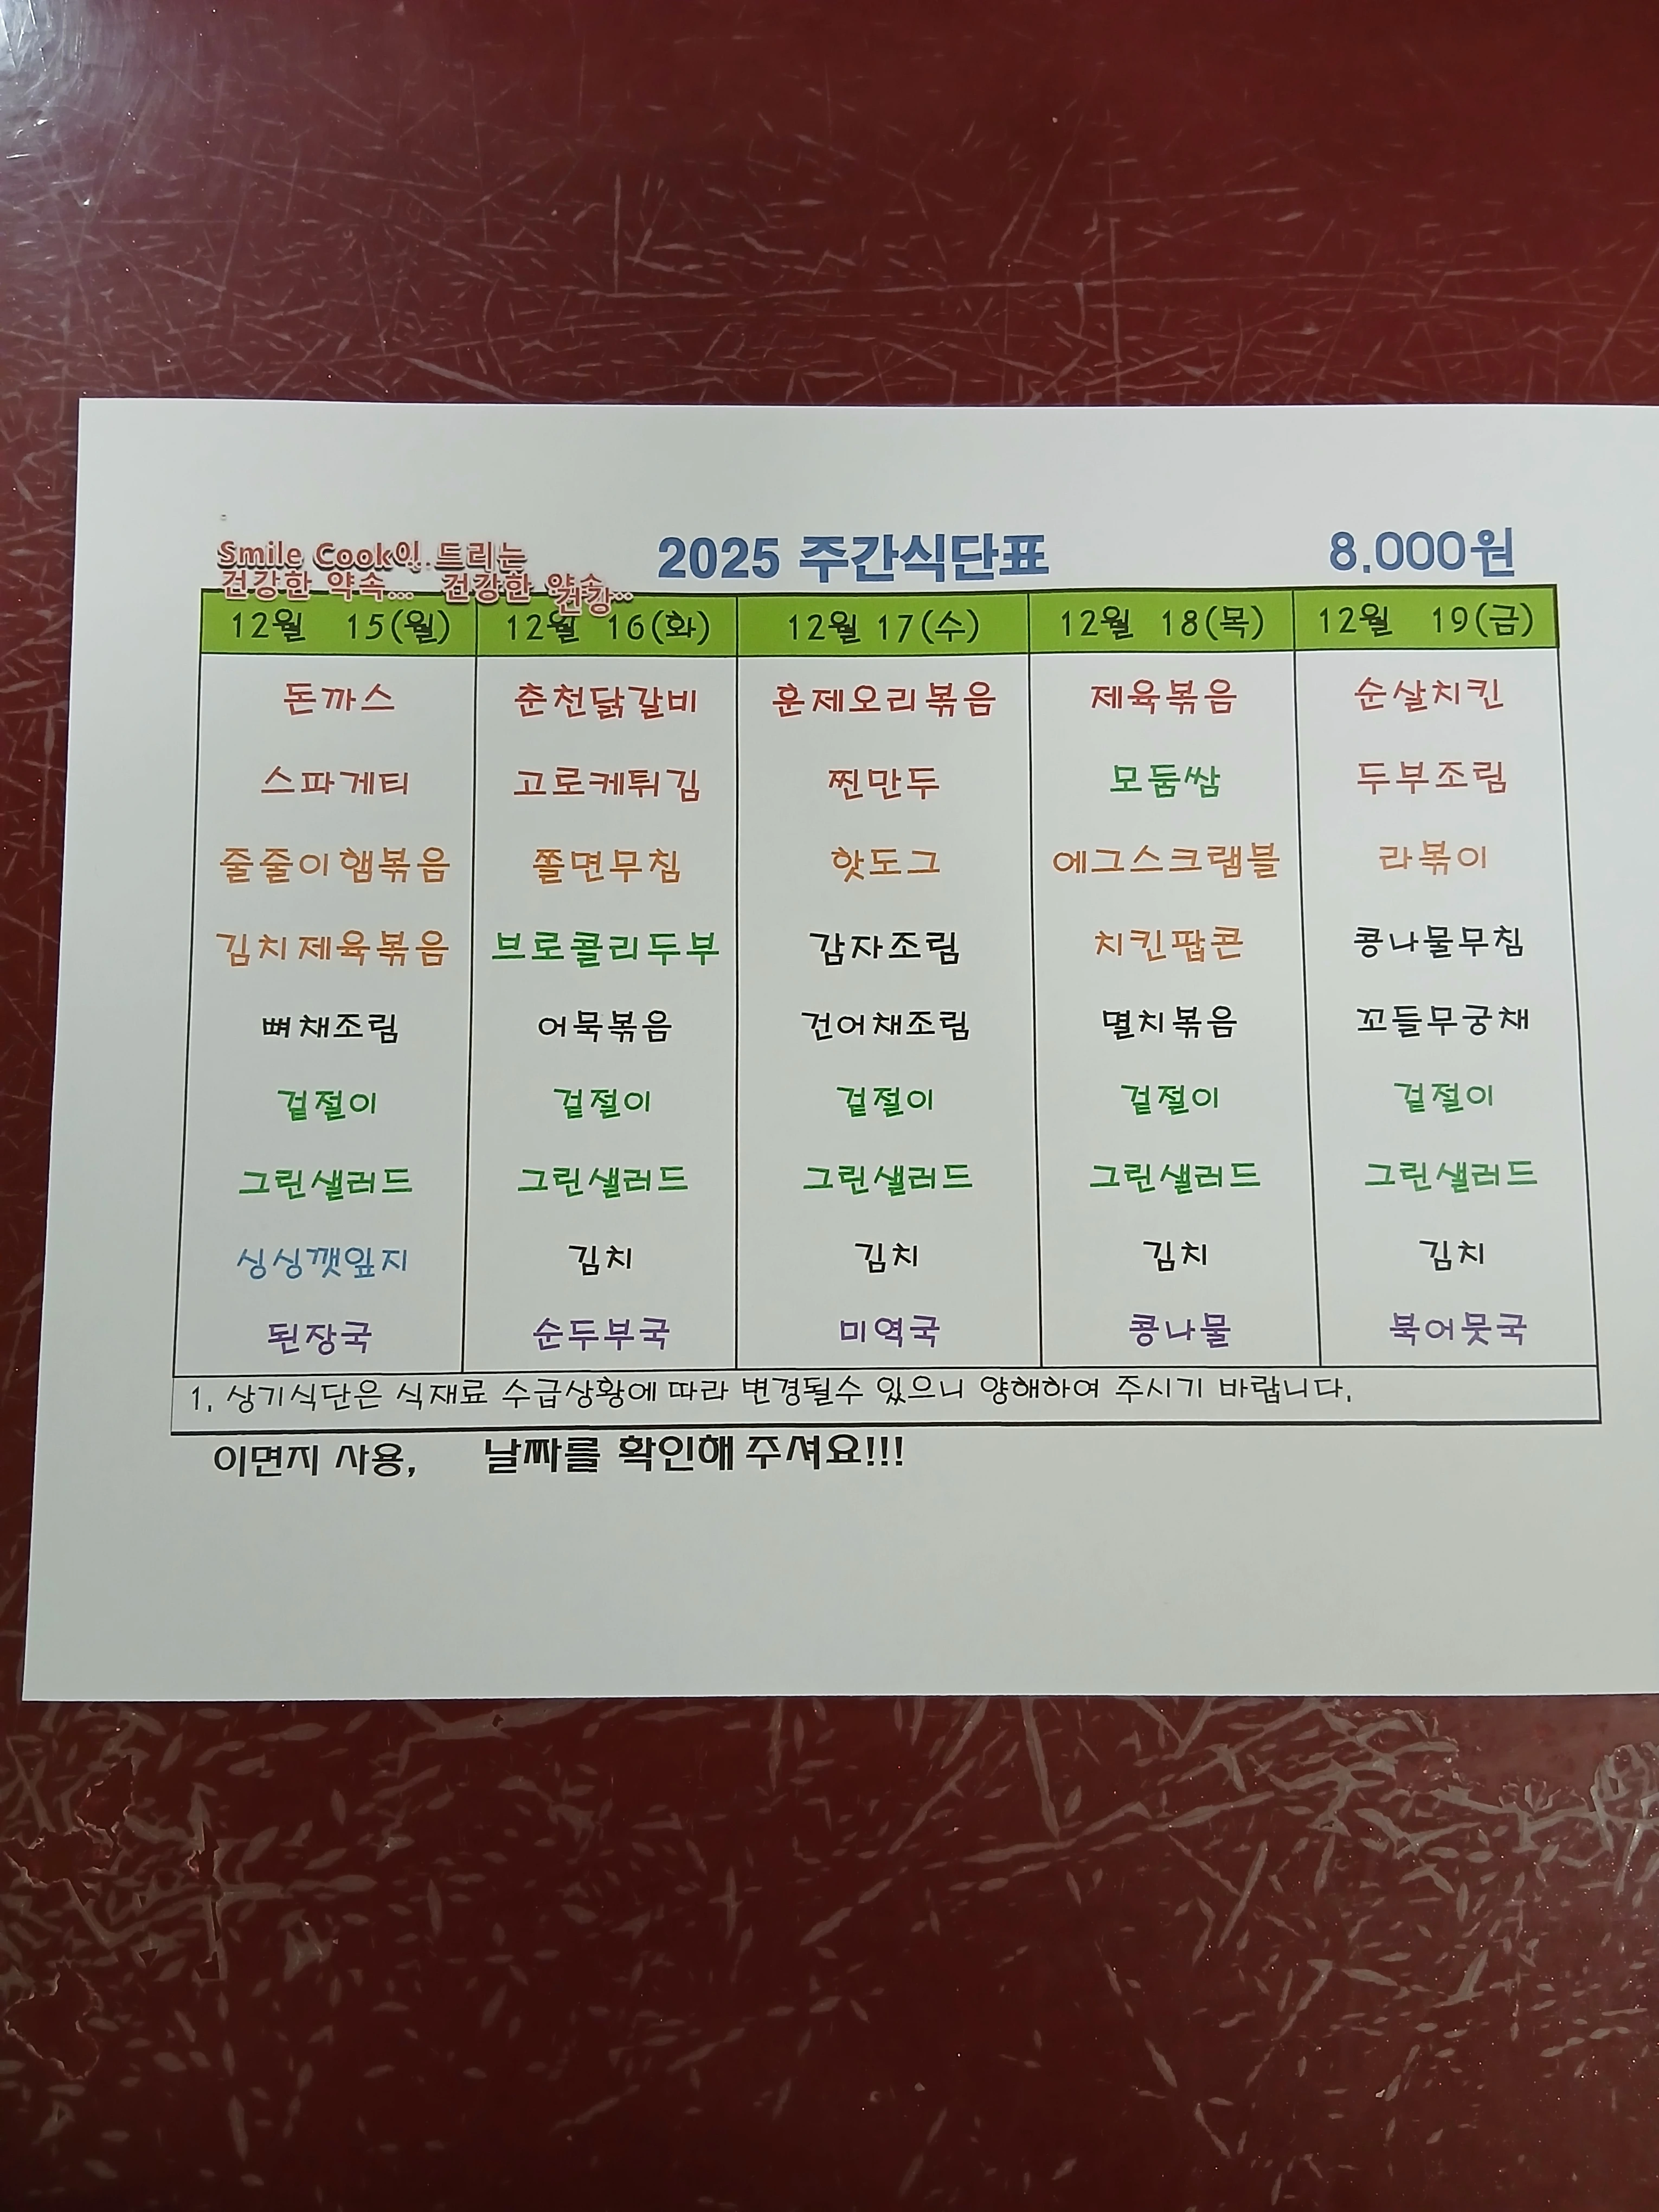 Smile Cook이 드리는
건강한 약속... 건강한 약속..
건강
2025 주간식단표 8.000원
12월 15(월) 12월 16(화) 12월 17(수) 12월 18(목) 12월 19(금)
돈까스 춘천닭갈비 훈제오리볶음 제육볶음 순살치킨
스파게티 고로케튀김 찐만두 모둠쌈 두부조림
줄줄이햄볶음 쫄면무침 핫도그 에그스크램블 라볶이
김치제육볶음 브로콜리두부 감자조림 치킨팝콘 콩나물무침
뼈채조림 어묵볶음 건어채조림 멸치볶음 꼬들무궁채
겉절이 겉절이 겉절이 겉절이 겉절이
그린샐러드 그린샐러드 그린샐러드 그린샐러드 그린샐러드
싱싱깻잎지 김치 김치 김치 김치
된장국 순두부국 미역국 콩나물 북어뭇국
1. 상기식단은 식재료 수급상황에 따라 변경될수 있으니 양해하여 주시기 바랍니다.
이면지 사용, 날짜를 확인해 주셔요!!!